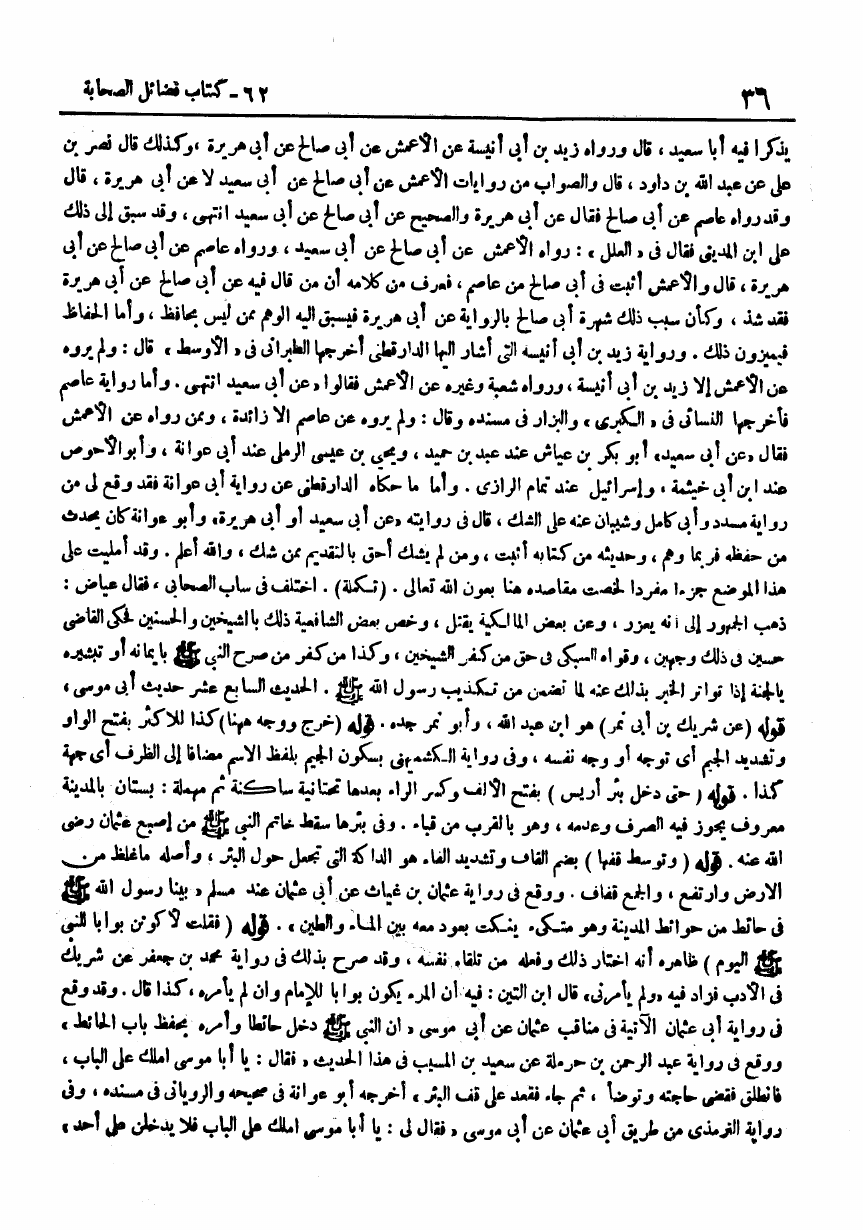 ٣٦ ٦٢ - كتاب فضائل الصحابة
يذكرا فيه أبا سعيد ، قال ورواه زيد بن أبى أنيسة عن الأعمش عن أبى صالح عن أبى هريرة ، وكذلك قال نصر بن
على عن عبد الله بن داود ، قال والصواب من روايات الأعمش عن أبى صالح عن أبى سعيد لا عن أبى هريرة ، قال
وقد رواه عاصم عن أبى صالح فقال عن أبى هريرة والصحيح عن أبى صالح عن أبى سعيد انتهى ، وقد سبق إلى ذلك
على ابن المدينى فقال فى « العلل » : رواه الأعمش عن أبى صالح عن أبى سعيد ، ورواه عاصم عن أبى صالح عن أبى
هريرة ، قال والأعمش أثبت فى أبى صالح من عاصم ، فعرف من كلامه أن من قال فيه عن أبى صالح عن أبى هريرة
فقد شذ ، وكأن سبب ذلك شهرة أبى صالح بالرواية عن أبى هريرة فيسبق اليه الوهم ممن ليس بحافظ ، وأما الحفاظ
فيميزون ذلك . ورواية زيد بن أبى أنيسه التى أشار اليها الدارقطنى أخرجها الطبرانى فى « الأوسط » قال : ولم يروه
عن الأعمش إلا زيد بن أبى أنيسة ، ورواه شعبة وغيره عن الأعمش فقالوا « عن أبى سعيد انتهى . وأما رواية عاصم
فأخرجها النسائى فى « الكبرى » والبزار فى مسنده وقال : ولم يروه عن عاصم الا زائدة ، وممن رواه عن الأعمش
فقال « عن أبى سعيد » أبو بكر بن عياش عند عبد بن حميد ، ويحيى بن عيسى الرملى عند أبى عوانة ، وأبو الأحوص
عند ابن أبى خيثمة ، وإسرائيل عند تمام الرازى . وأما ما حكاه الدارقطنى عن رواية أبى عوانة فقد وقع لى من
رواية مسدد وأبى كامل وشيبان عنه على الشك ، قال فى روايته « عن أبى سعيد أو أبى هريرة » وأبو عوانة كان يحدث
من حفظه فربما وهم ، وحديثه من كتابه أثبت ، ومن لم يشك أحق بالتقديم ممن شك ، والله أعلم . وقد أمليت على
هذا الموضع جزءا مفردا لخصت مقاصده هنا بعون الله تعالى . (تكملة) . اختلف فى ساب الصحابى ، فقال عياض :
ذهب الجمهور إلى أنه يعزر ، وعن بعض المالكية يقتل ، وخص بعض الشافعية ذلك بالشيخين والحسنين فحكى القاضى
حسين فى ذلك وجهين ، وقواه السبكى فى حق من كفر الشيخين ، وكذا من كفر من صرح النبى ﷺ بايمانه أو تبشيره
بالجنة إذا تواتر الخبر بذلك عنه لما تضمن من تكذيب رسول الله ﷺ . الحديث السابع عشر حديث أبى موسى ،
قوله (عن شريك بن أبى نمر) هو ابن عبد الله ، وأبو نمر جده . قوله (خرج ووجه ههنا) كذا للاكثر بفتح الواو
وتشديد الجيم أى توجه أو وجه نفسه ، وفى رواية الكشميهنى بسكون الجيم بلفظ الاسم مضافا إلى الظرف أى جهة
كذا . قوله ( حتى دخل بئر أريس ) بفتح الالف وكسر الراء بعدها تحتانية ساكنة ثم مهملة : بستان بالمدينة
معروف يجوز فيه الصرف وعدمه ، وهو بالقرب من قباء . وفى بئرها سقط خاتم النبى ﷺ من إصبع عثمان رضى
الله عنه . قوله ( وتوسط قفها ) بضم القاف وتشديد الفاء هو الداكة التى تجعل حول البئر ، وأصله ماغلظ من
الارض وارتفع ، والجمع قفاف . ووقع فى رواية عثمان بن غياث عن أبى عثمان عند مسلم « بينا رسول الله ﷺ
فى حائط من حوائط المدينة وهو متكىء ينكت بعود معه بين الماء والطين » . قوله ( فقلت لاكونن بوابا للنبى
ﷺ اليوم ) ظاهره أنه اختار ذلك وفعله من تلقاء نفسه ، وقد صرح بذلك فى رواية محمد بن جعفر عن شريك
فى الأدب فزاد فيه « ولم يأمرنى » قال ابن التين : فيه أن المرء يكون بوابا للإمام وان لم يأمره ، كذا قال . وقد وقع
فى رواية أبى عثمان الآتية فى مناقب عثمان عن أبى موسى « ان النبى ﷺ دخل حائطا وأمره بحفظ باب الحائط »
ووقع فى رواية عبد الرحمن بن حرملة عن سعيد بن المسيب فى هذا الحديث « فقال : يا أبا موسى املك على الباب ،
فانطلق فقضى حاجته وتوضأ ، ثم جاء فقعد على قف البئر » أخرجه أبو عوانة فى صحيحه والرويانى فى مسنده ، وفى
رواية الترمذى من طريق أبى عثمان عن أبى موسى « فقال لى : يا أبا موسى املك على الباب فلا يدخلن على أحد »